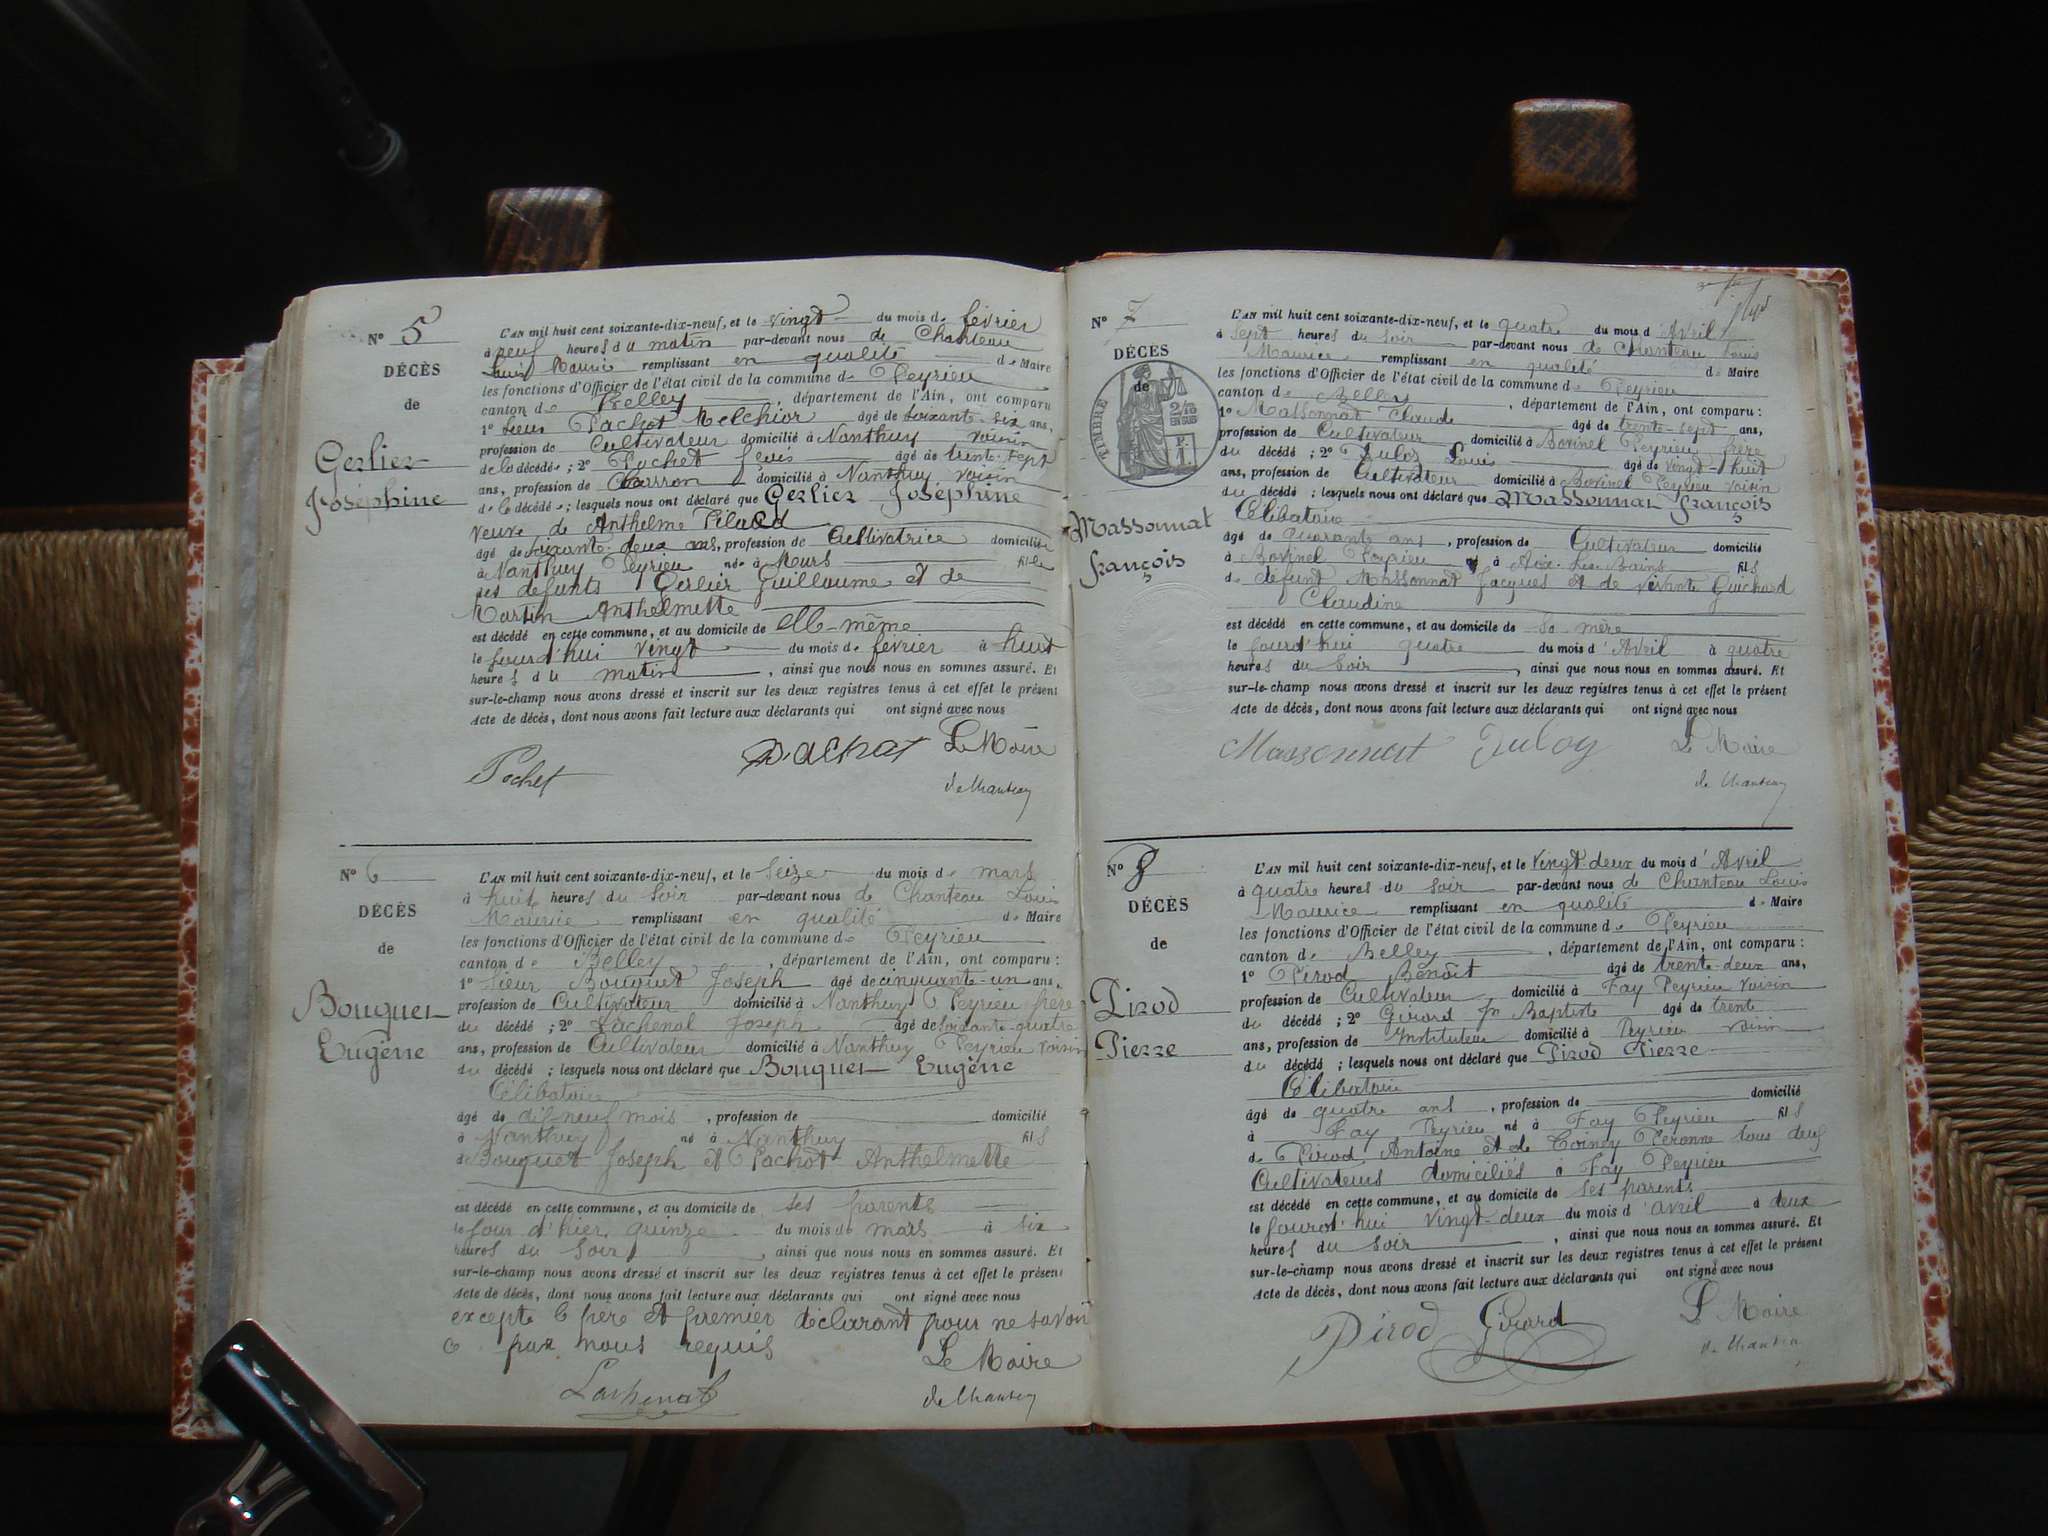 N° 5
DÉCÈS
de
Gerlier
Joséphine
L'AN mil huit cent soixante-dix-neuf, et le vingt du mois de février
à neuf heures du matin par-devant nous de Chanteau
Louis Maurice remplissant en qualité de Maire
les fonctions d'Officier de l'état civil de la commune de Peyrieu
canton de Belley, département de l'Ain, ont comparu
1° Sieur Pachot Melchior âgé de soixante-six ans,
profession de Cultivateur domicilié à Nanthuy voisin
de la décédée; 2° Pochet âgé de trente-sept
ans, profession de Charron domicilié à Nanthuy voisin
de la décédée; lesquels nous ont déclaré que Gerlier Joséphine
veuve de Anthelme
âgé de soixante-deux ans, profession de Cultivatrice domiciliée
à Nanthuy Peyrieu née à Murs fille
des défunts Gerlier Guillaume et de
Martin Anthelmette
est décédé en cette commune, et au domicile de elle-même
le jourd'hui vingt du mois de février à huit
heures du matin, ainsi que nous nous en sommes assuré. Et
sur-le-champ nous avons dressé et inscrit sur les deux registres tenus à cet effet le présent
Acte de décès, dont nous avons fait lecture aux déclarants qui ont signé avec nous
Pochet Pachot Le Maire
de Chanteau
N° 6
DÉCÈS
de
Bouquet
Eugène
L'AN mil huit cent soixante-dix-neuf, et le Seize du mois de mars
à huit heures du Soir par-devant nous de Chanteau Louis
Maurice remplissant en qualité de Maire
les fonctions d'Officier de l'état civil de la commune de Peyrieu
canton de Belley, département de l'Ain, ont comparu :
1° Sieur Bouquet Joseph âgé de cinquante-un ans,
profession de Cultivateur domicilié à Nanthuy Peyrieu père
du décédé; 2° Lachenal Joseph âgé de soixante-quatre
ans, profession de Cultivateur domicilié à Nanthuy Peyrieu voisin
du décédé; lesquels nous ont déclaré que Bouquet Eugène
Célibataire
âgé de dixneuf mois, profession de domicilié
à Nanthuy né à Nanthuy fils
de Bouquet Joseph et Pachot Anthelmette
est décédé en cette commune, et au domicile de ses parents
le jour d'hier quinze du mois de mars à six
heures du Soir, ainsi que nous nous en sommes assuré. Et
sur-le-champ nous avons dressé et inscrit sur les deux registres tenus à cet effet le présent
Acte de décès, dont nous avons fait lecture aux déclarants qui ont signé avec nous
excepté le père et premier déclarant pour ne savoir
ce par nous requis
Le Maire
Lachenal de Chanteau
N° 7
DÉCÈS
de
TIMBRE
Massonnat
François
L'AN mil huit cent soixante-dix-neuf, et le quatre du mois d'Avril
à sept heures du soir par-devant nous de Chanteau Louis
Maurice remplissant en qualité de Maire
les fonctions d'Officier de l'état civil de la commune de Peyrieu
canton de Belley, département de l'Ain, ont comparu :
1° Massonnat Claude âgé de trente-sept ans,
profession de Cultivateur domicilié à Bovinel Peyrieu frère
du décédé; 2° Louis âgé de vingt-huit
ans, profession de Cultivateur domicilié à Bovinel Peyrieu voisin
du décédé; lesquels nous ont déclaré que Massonnat François
Célibataire
âgé de quarante ans, profession de Cultivateur domicilié
à Bovinel Peyrieu né à Aix-les-Bains fils
de défunt Massonnat Jacques et de vivante Guichard
Claudine
est décédé en cette commune, et au domicile de sa mère
le jourd'hui quatre du mois d'Avril à quatre
heures du Soir, ainsi que nous nous en sommes assuré. Et
sur-le-champ nous avons dressé et inscrit sur les deux registres tenus à cet effet le présent
Acte de décès, dont nous avons fait lecture aux déclarants qui ont signé avec nous
Massonnat Le Maire
de Chanteau
N° 8
DÉCÈS
de
Pirod
Pierre
L'AN mil huit cent soixante-dix-neuf, et le vingt-deux du mois d'Avril
à quatre heures du Soir par-devant nous de Chanteau Louis
Maurice remplissant en qualité de Maire
les fonctions d'Officier de l'état civil de la commune de Peyrieu
canton de Belley, département de l'Ain, ont comparu :
1° Pirod Benoît âgé de trente-deux ans,
profession de Cultivateur, domicilié à Fay Peyrieu voisin
du décédé; 2° Girard Jn Baptiste âgé de trente
ans, profession de Instituteur domicilié à Peyrieu voisin
du décédé; lesquels nous ont déclaré que Pirod Pierre
Célibataire
âgé de quatre ans, profession de domicilié
à Fay Peyrieu né à Fay Peyrieu fils
de Pirod Antoine et de Peronne tous deux
Cultivateurs domiciliés à Fay Peyrieu
est décédé en cette commune, et au domicile de ses parents
le jourd'hui vingt-deux du mois d'avril à deux
heures du Soir, ainsi que nous nous en sommes assuré. Et
sur-le-champ nous avons dressé et inscrit sur les deux registres tenus à cet effet le présent
Acte de décès, dont nous avons fait lecture aux déclarants qui ont signé avec nous
Pirod Girard Le Maire
de Chanteau